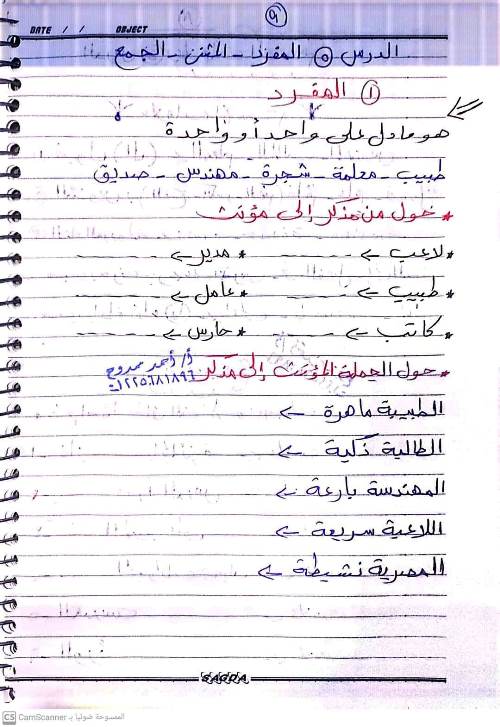 ٩
DATE / / OBJECT
الدرس ٥ المفرد - المثنى - الجمع
١ المفرد
هو ما دل على واحد أو واحدة
طبيب - معلمة - شجرة - مهندس - صديق
* حول من مذكر إلى مؤنث
* لاعب ← ------ * مدير ← ------
* طبيب ← ------ * عامل ← ------
* كاتب ← ------ * حارس ← ------
* حول الجملة المؤنث إلى مذكر أ/ أحمد ممدوح
الطبيبة ماهرة ←
الطالبة ذكية ←
المهندسة بارعة ←
اللاعبة سريعة ←
المصرية نشيطة ←
SAODA
CS الممسوحة ضوئيا بـ CamScanner